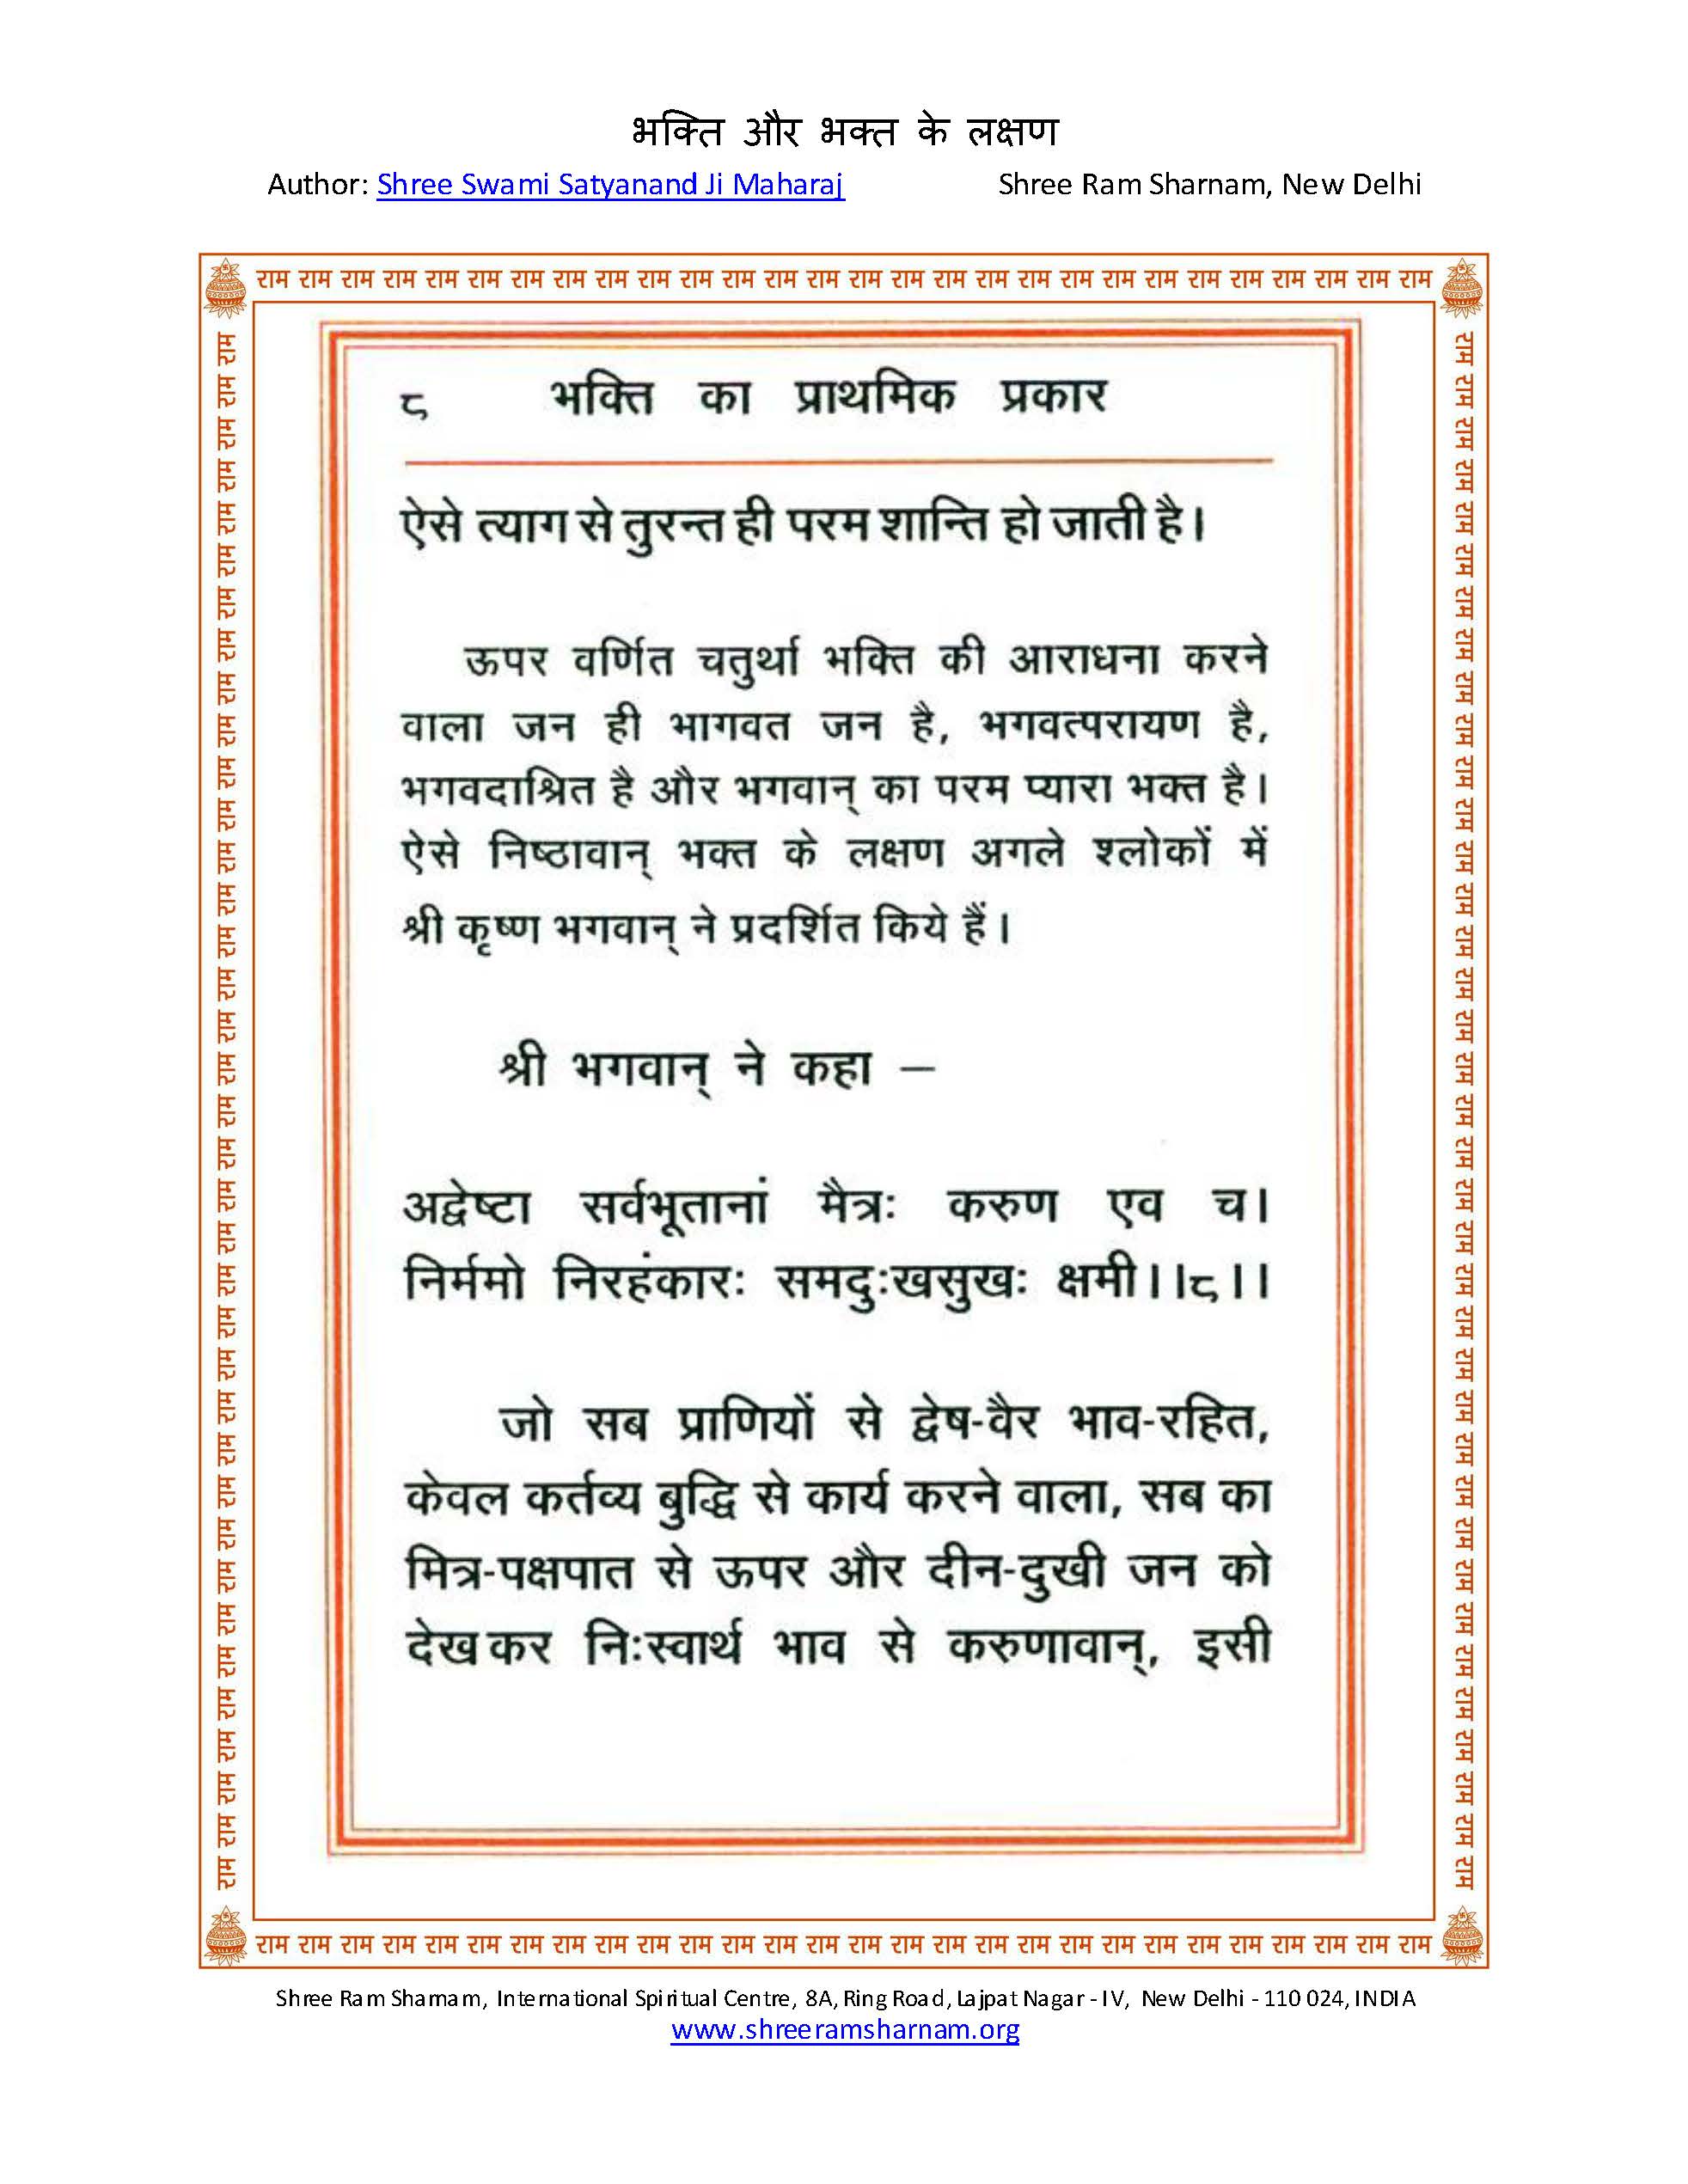 भक्ति और भक्त के लक्षण
Author: Shree Swami Satyanand Ji Maharaj Shree Ram Sharnam, New Delhi
राम राम राम राम राम राम राम राम राम राम राम राम राम राम राम राम राम राम राम राम राम राम राम राम राम राम राम राम
८ भक्ति का प्राथमिक प्रकार
ऐसे त्याग से तुरन्त ही परम शान्ति हो जाती है।
ऊपर वर्णित चतुर्था भक्ति की आराधना करने
वाला जन ही भागवत जन है, भगवत्परायण है,
भगवदाश्रित है और भगवान् का परम प्यारा भक्त है।
ऐसे निष्ठावान् भक्त के लक्षण अगले श्लोकों में
श्री कृष्ण भगवान् ने प्रदर्शित किये हैं।
श्री भगवान् ने कहा –
अद्वेष्टा सर्वभूतानां मैत्रः करुण एव च।
निर्ममो निरहंकारः समदुःखसुखः क्षमी।।८।।
जो सब प्राणियों से द्वेष-वैर भाव-रहित,
केवल कर्तव्य बुद्धि से कार्य करने वाला, सब का
मित्र-पक्षपात से ऊपर और दीन-दुखी जन को
देख कर निःस्वार्थ भाव से करुणावान्, इसी
राम राम राम राम राम राम राम राम राम राम राम राम राम राम राम राम राम राम राम राम राम राम राम राम राम राम राम राम
Shree Ram Sharnam, International Spiritual Centre, 8A, Ring Road, Lajpat Nagar - IV, New Delhi - 110 024, INDIA
www.shreeramsharnam.org